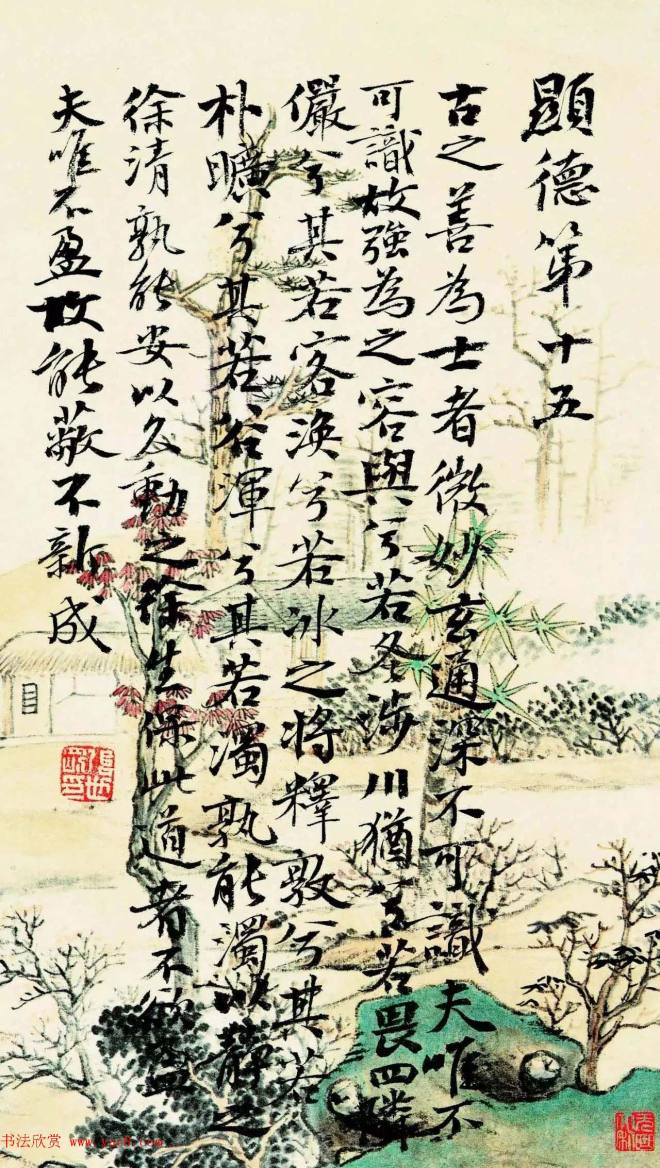 顯德第十五
古之善為士者微妙玄通深不可識夫唯不
可識故強為之容與兮若冬涉川猶兮若畏四隣
儼兮其若客渙兮若冰之將釋敦兮其若
朴曠兮其若谷渾兮其若濁孰能濁以靜之
徐清孰能安以久動之徐生保此道者不欲盈
夫唯不盈故能蔽不新成
书法欣赏 www.yac8.com